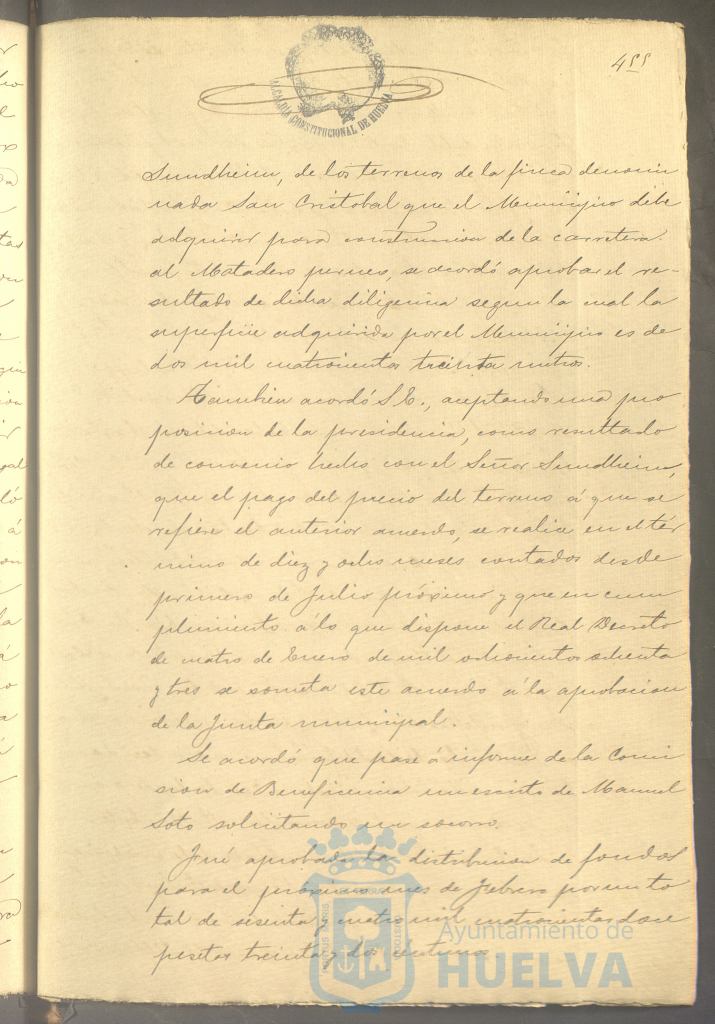 455
ALCALDÍA CONSTITUCIONAL DE HUELVA
Sundheim, de los terrenos de la finca denomi
nada San Cristobal que el Municipio debe
adquirir para construccion de la carretera
al Matadero , se acordó aprobar el re-
sultado de dicha diligencia segun la cual la
superficie adquirida por el Municipio es de
dos mil cuatrocientos treinta metros.
Tambien acordó S. E., aceptando una pro
posicion de la presidencia, como resultado
de convenio hecho con el Señor Sundheim,
que el pago del precio del terreno á que se
refiere el anterior acuerdo, se realice en el tér
mino de diez y ocho meses contados desde
primero de Julio próximo y que en cum
plimiento á lo que dispone el Real Decreto
de cuatro de Enero de mil ochocientos ochenta
y tres se someta este acuerdo á la aprobacion
de la Junta municipal.
Se acordó que pase á informe de la Comi
sion de Beneficencia un escrito de Manuel
Soto solicitando un socorro.
Fué aprobada la distribucion de fondos
para el próximo mes de Febrero por un to
tal de sesenta y cuatro mil cuatrocientas doce
pesetas treinta y dos céntimos.
Ayuntamiento de
HUELVA